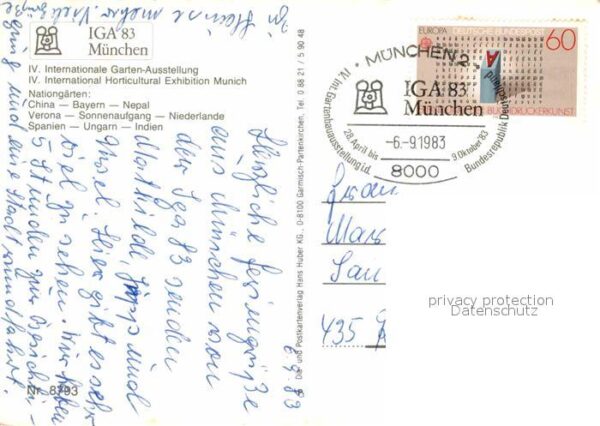 IGA 83
München
IV. Internationale Garten-Ausstellung
IV. International Horticultural Exhibition Munich
Nationgärten:
China – Bayern – Nepal
Verona – Sonnenaufgang – Niederlande
Spanien – Ungarn – Indien
Nr. 8793
Die- und Postkartenverlag Hans Huber KG., D-8100 Garmisch-Partenkirchen, Tel. 0 88 21 / 5 90 48
6.9.83
Herzliche Feriengrüße
aus München von
der Iga 83 senden
Mathilde, und
Hier gibt es sehr
viel zu sehen. Wir haben
5 Stunden zur
und eine Stadtrundfahrt.
EUROPA DEUTSCHE BUNDESPOST 60
BUCHDRUCKERKUNST
MÜNCHEN 2
IGA 83
München
IV. Int. Gartenbauausstellung i.d.
Bundesrepublik Deutschland
28. April bis
9. Oktober 83
-6.-9.1983
8000
435
privacy protection
Datenschutz